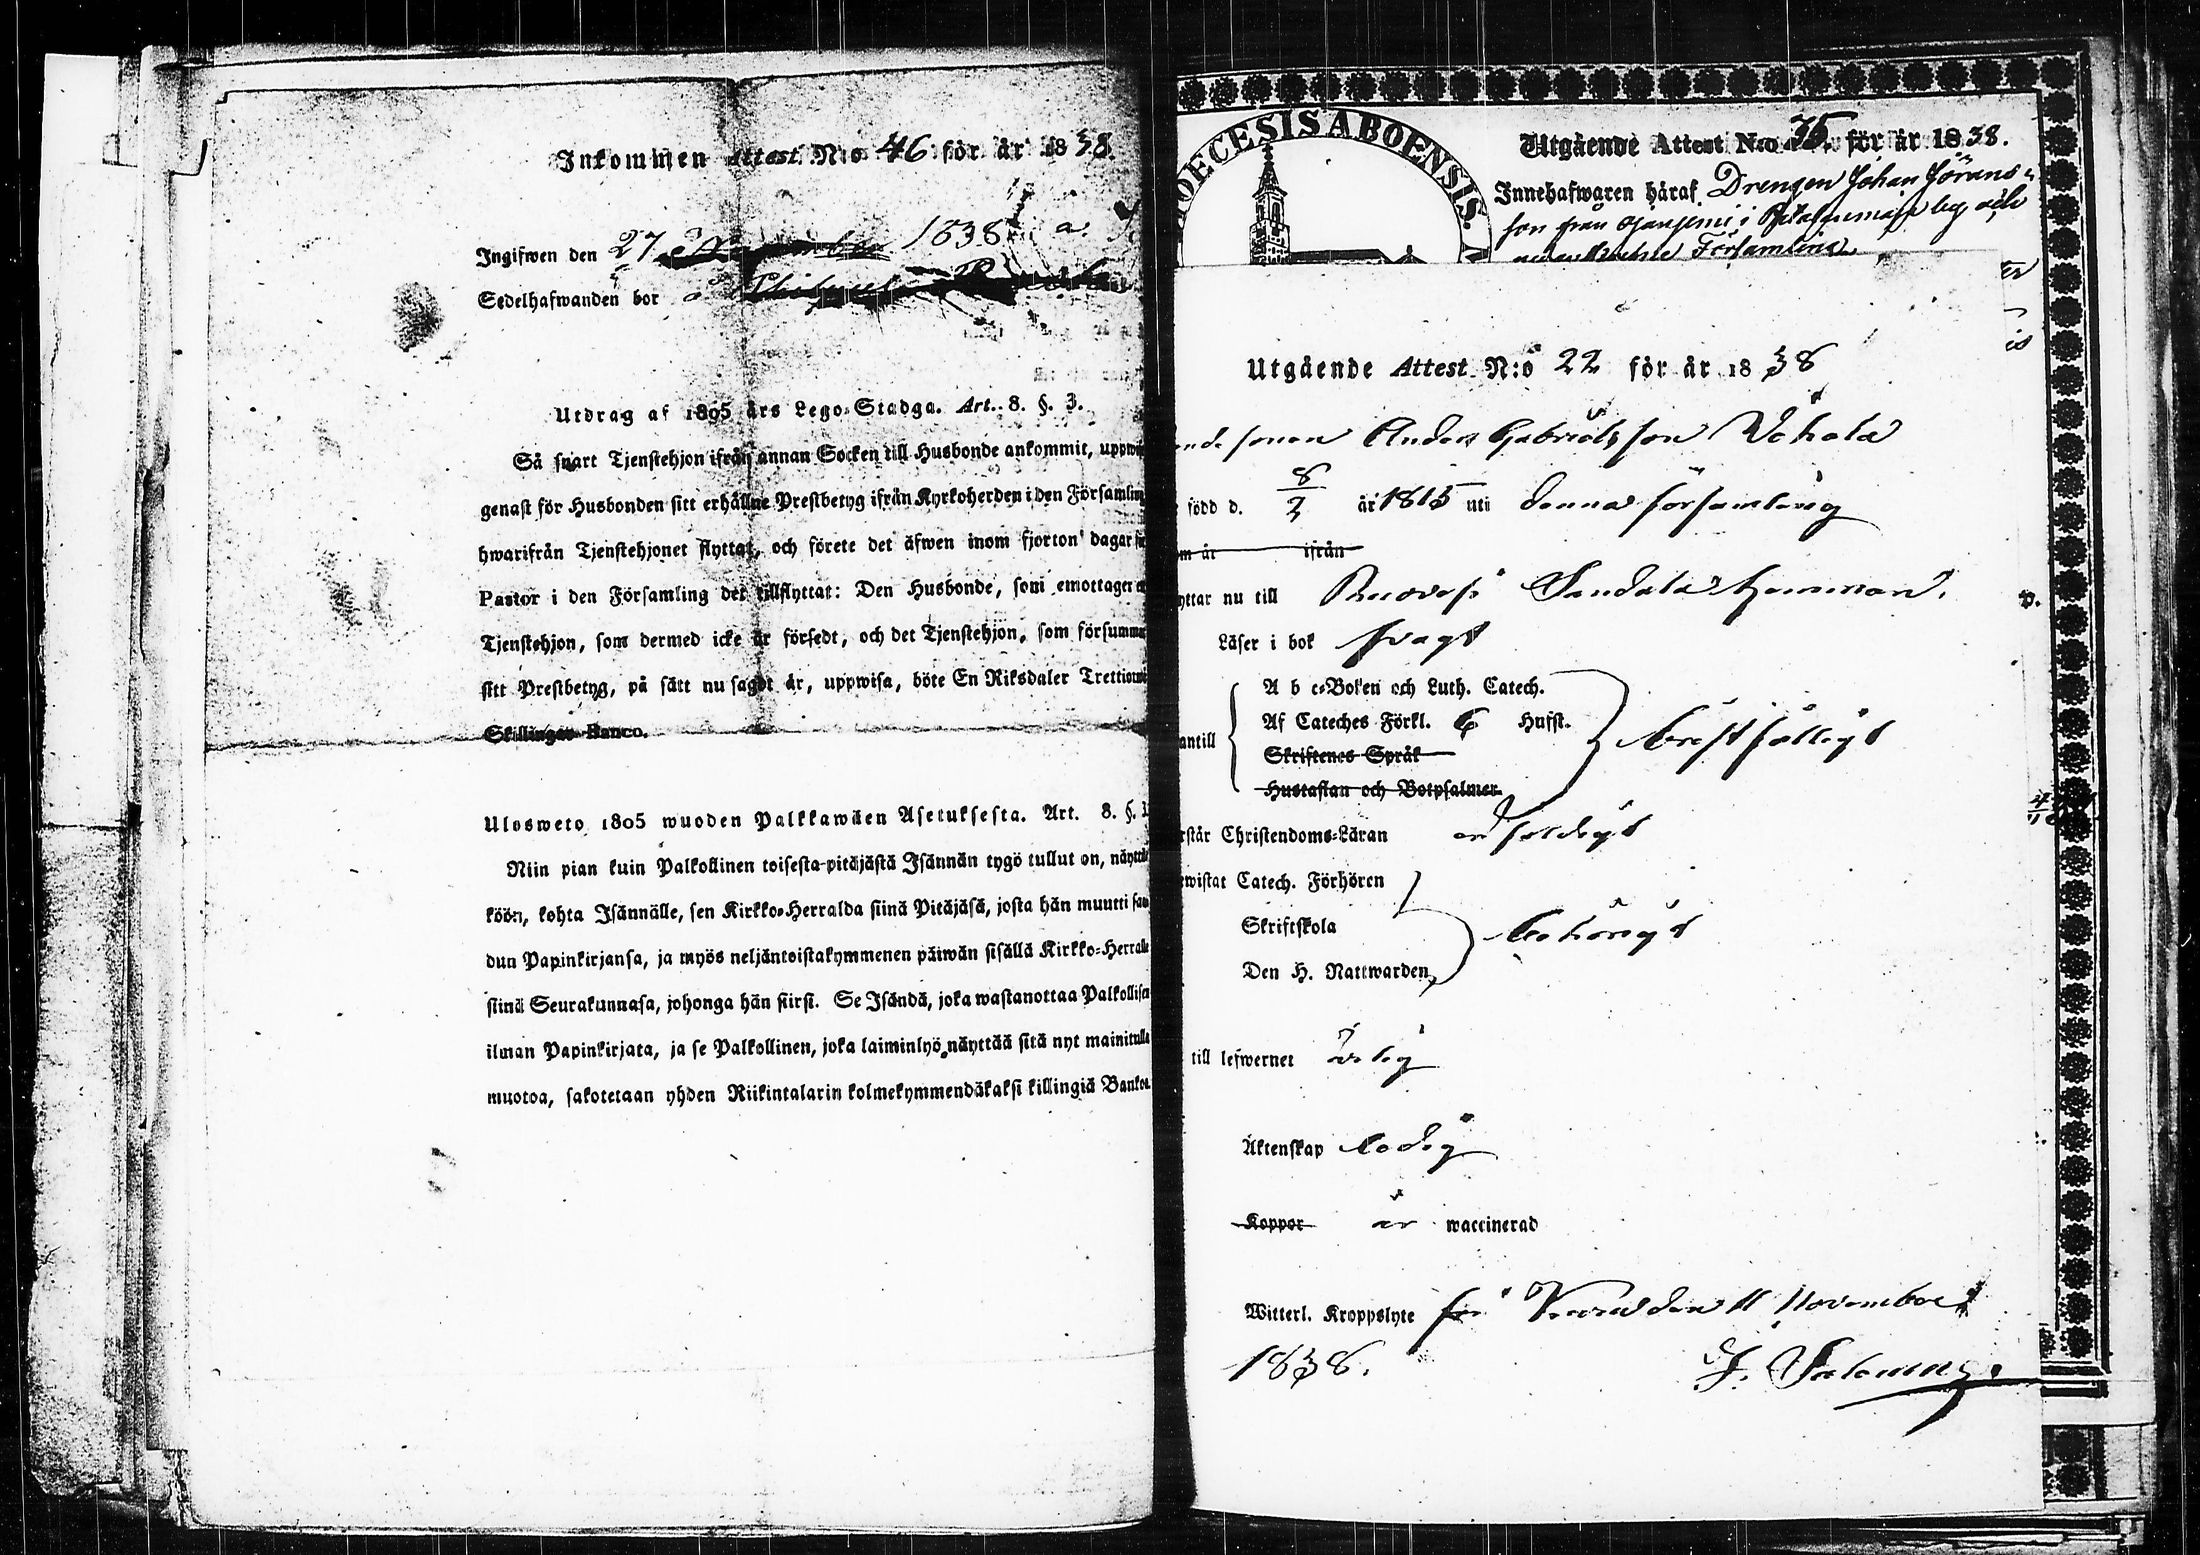 Inkommen Attest N:o 46 för år 1838.
Ingifwen den 27 1838
Sedelhafwanden bor
Utdrag af 1805 års Lego-Stadga. Art. 8. §. 3.
Så snart Tjenstehjon ifrån annan Socken till Husbonde ankommit, uppwi
genast för Husbonden sitt erhållne Prestbetyg ifrån Kyrkoherden i den Församling
hwarifrån Tjenstehjonet flyttat, och förete det äfwen inom fjorton dagar
Pastor i den Församling det tillflyttat: Den Husbonde, som emottager
Tjenstehjon, som dermed icke är försedt, och det Tjenstehjon, som försumma
sitt Prestbetyg, på sätt nu sagdt är, uppwisa, böte En Riksdaler
Skillingar Banco.
Ulosweto 1805 wuoden Palkkawäen Asetuksesta. Art. 8. §. 3
Niin pian kuin Palkollinen toisesta-pitäjästä Isännän tygö tullut on, näyttä
köön, kohta Isännälle, sen Kirkko-Herralda siinä Pitäjäsä, josta hän muutti saa
dun Papinkirjansa, ja myös neljäntoistakymmenen päiwän sisällä Kirkko-Herralle
siinä Seurakunnasa, johonga hän siirsi. Se Isändä, joka wastanottaa Palkollisen
ilman Papinkirjata, ja se Palkollinen, joka laiminlyö näyttää sitä nyt mainitulla
muotoa, sakotetaan yhden Riikintalarin kolmekymmendäkaksi killingiä Bankoa.
DIOECESIS ABOENSIS.
Utgående Attest N:o 35. för år 1838.
Innehafwaren häraf Drengen Johan Görans-
son från i
Församling
Utgående Attest N:o 22 för år 1838
sonen Anders Gabrielsson
född d. 8/2 år 1815 uti denna församling
om år ifrån
yttar nu till Sandala hemman.
Läser i bok svagt
A b c-Boken och Luth. Catech.
Af Cateches Förkl. 6 Hufst.
antill bristfälligt
Skriftenes Språk
Hustaflan och Botpsalmer.
rstår Christendoms-Läran
ewistat Catech. Förhören
Skriftskola behörigt
Den H. Nattwarden
till lefwernet ärlig
Äktenskap ledig
Koppor är waccinerad
Witterl. Kroppslyte fri den 11 November
1838.